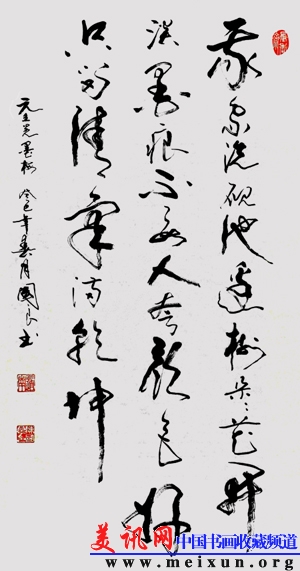 我家洗硯池邊樹朵々花開
淡墨痕不要人夸顏色好
只留清氣滿乾坤
元王冕墨梅 癸巳年春月國良书
美讯网 中国书画收藏频道
www.meixun.org